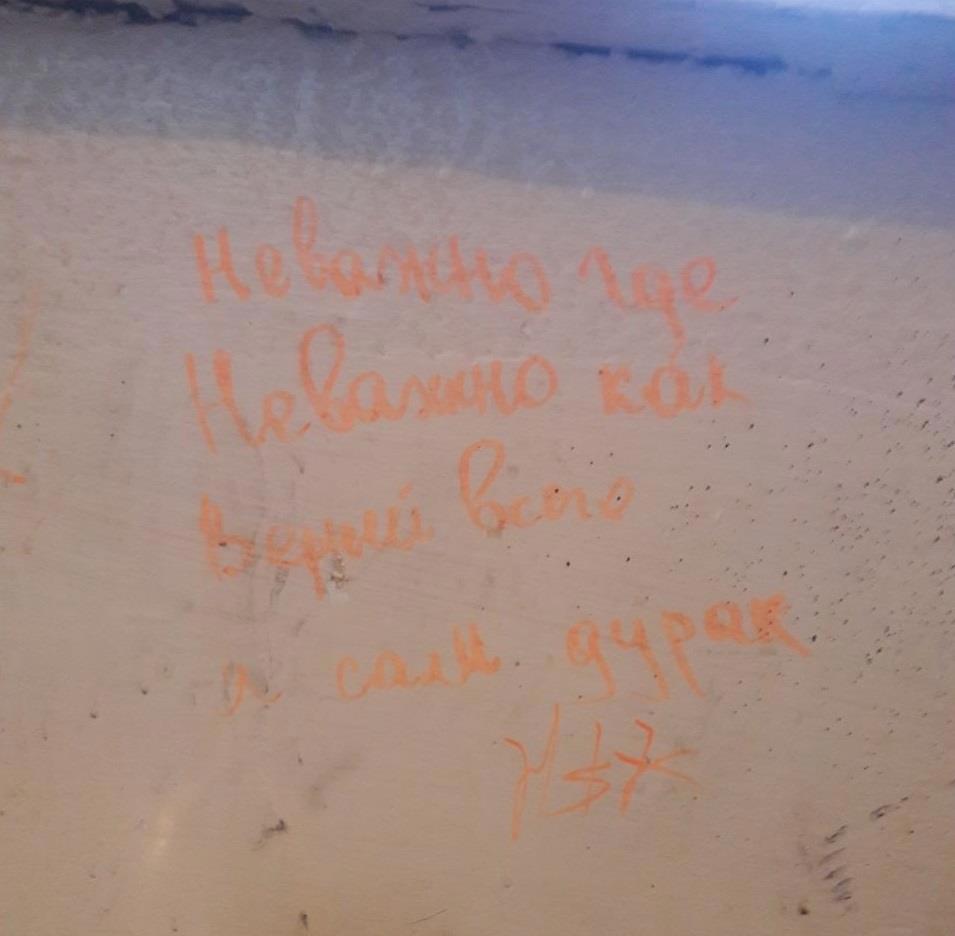 Неважно где
Неважно как
Верней всего
я сам дурак